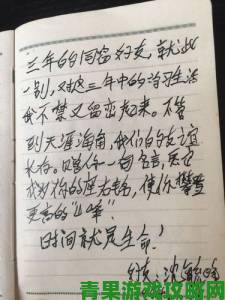 三年的同窗好友，就此
一别，对这三年中的学习生活
我不禁又留恋起来。不管
到天涯海角，我们的友谊
长存。只赠你一句名言，愿它
成为你的座右铭，使你攀登
更高的“山峰”
时间就是生命！
好友：沈
青果游戏攻略网